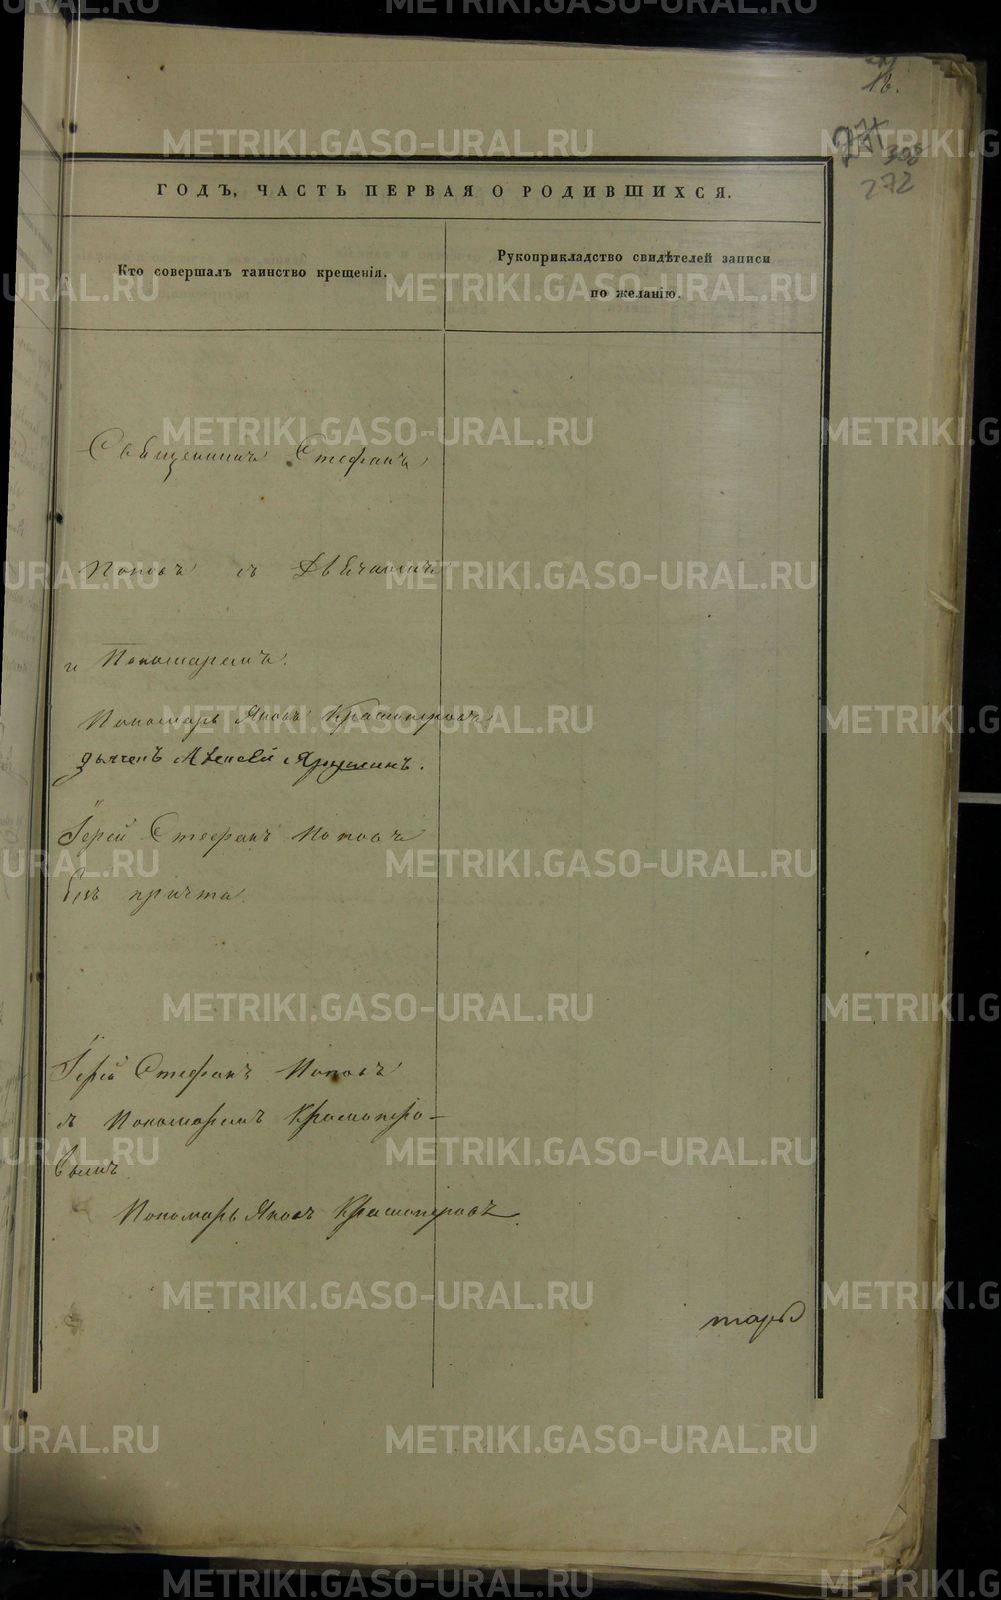 METRIKI.GASO-URAL.RU
16.
271
308
272
ГОДЪ, ЧАСТЬ ПЕРВАЯ О РОДИВШИХСЯ.
Кто совершалъ таинство крещенія.
Рукоприкладство свидѣтелей записи
по желанію.
Священникъ Стефанъ
Поповъ съ
и Пономаремъ.
Пономарь Яковъ Красноперовъ
дьячекъ Алексѣй Ярушинъ.
Іерей Стефанъ Поповъ
безъ причта.
Іерей Стефанъ Поповъ
съ Пономаремъ Красноперо-
вымъ
Пономарь Яковъ Красноперовъ